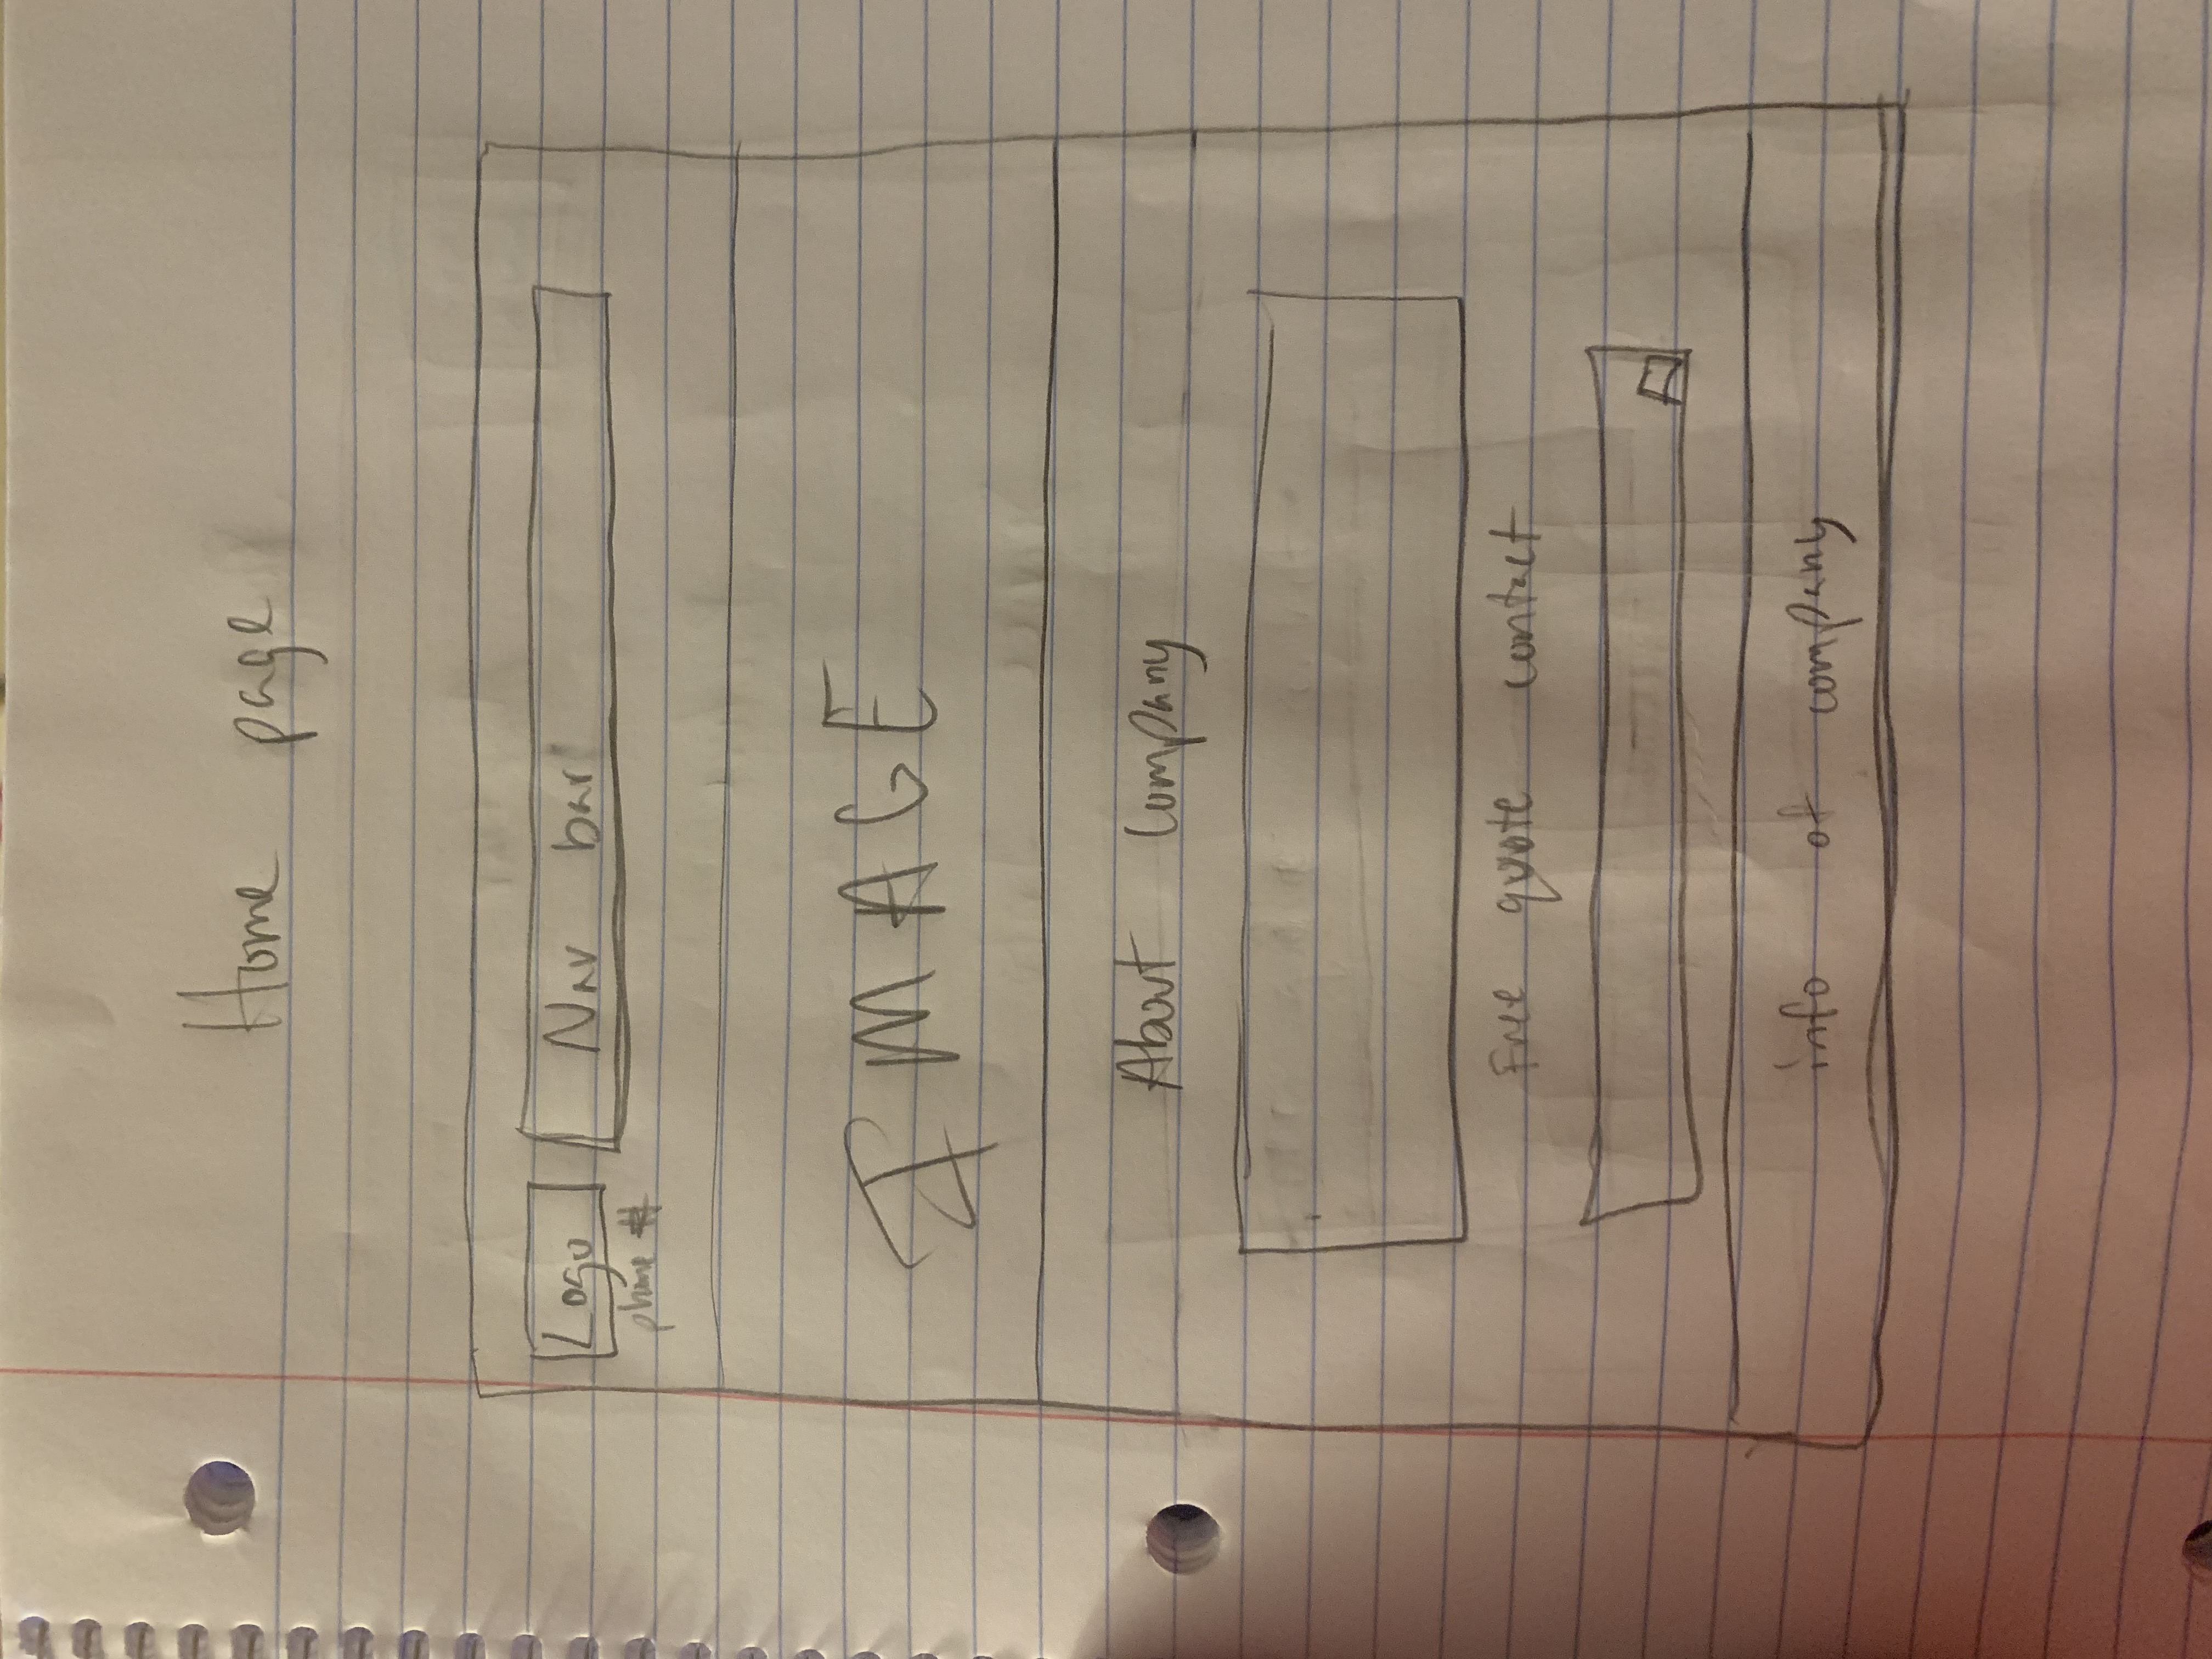 Home page
Logo Nav bar
phone #
IMAGE
About company
Free quote contact
info of company